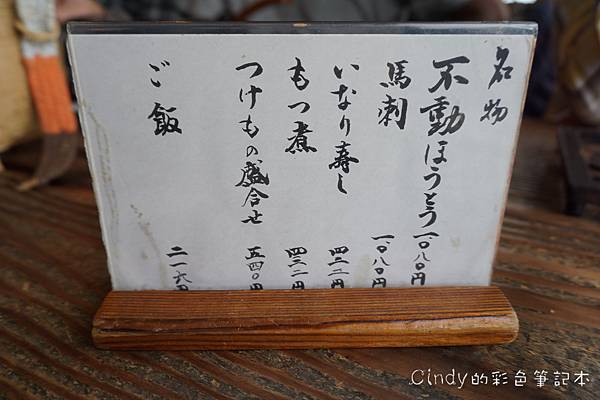 名物
不動ほうとう 一〇八〇円
馬刺 一〇八〇円
いなり寿し 四三二円
もつ煮 四三二円
つけもの盛合せ 五四〇円
ご飯 二一六円
Cindy的彩色筆記本